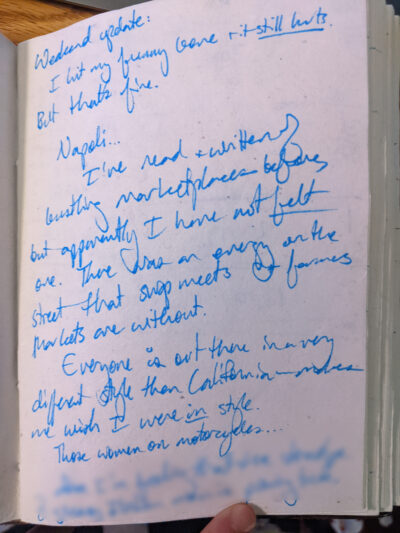 Weekend update:
I hit my funny bone + it still hurts.
But that's fine.
Napoli...
I've read + written of
bustling marketplaces before,
but apparently I have not felt
one. There was an energy on the
street that swap meets or farmers
markets are without.
Everyone is out there in a very
different style than California—makes
me wish I were in style.
Those women on motorcycles...